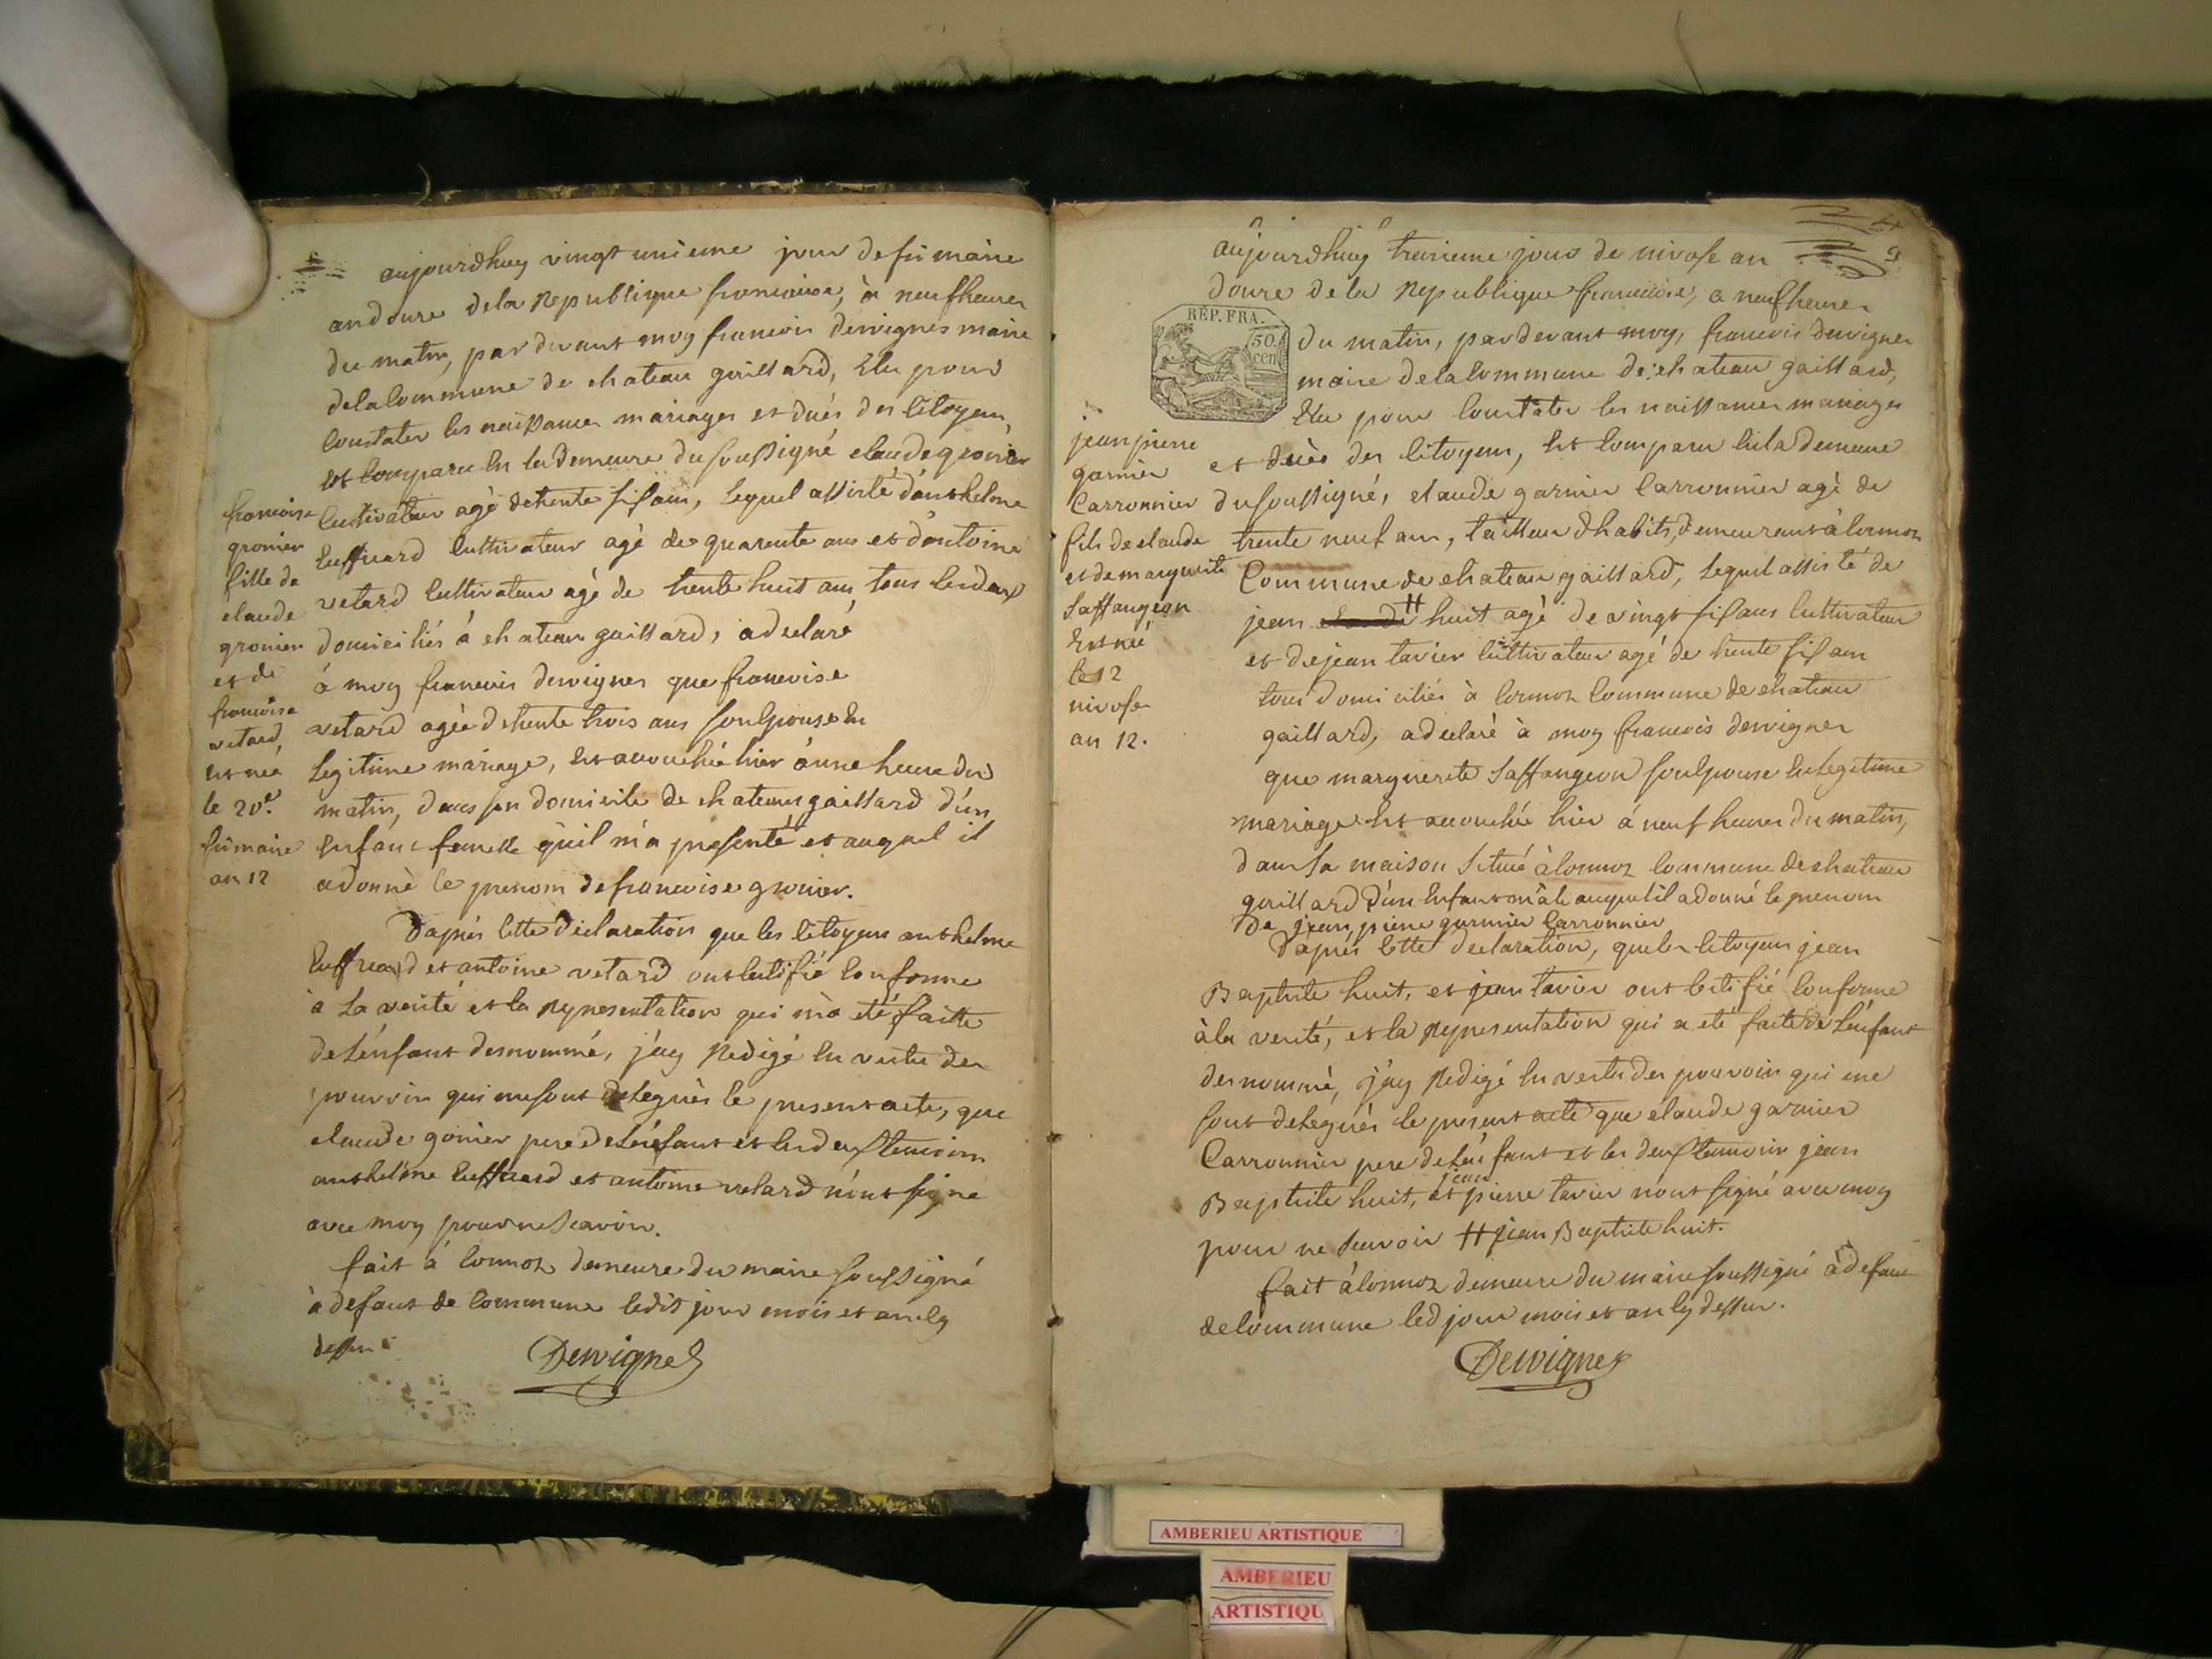 aujourdhuy vingt unieme jour de frimaire
an douze de la republique francaise, à neuf heures
du matin, par devant moy francois dervignes maire
de la commune de chateau gaillard, Elu pour
Constater les naissances mariages et décés des Citoyens,
est comparu en la demeure du soussigné claude gronier
Cultivateur agé de trente six ans, lequel assisté d'anthelme
cultivateur agé de quarente ans et d'antoine
vetard cultivateur agé de trente huit ans, tous les deux
domiciliés à chateau gaillard, a declaré
à moy francois dervignes que francoise
vetard agée de trente trois ans son Epouse en
Legitime mariage, est accouchée hier à une heure du
matin, dans son domicile de chateau gaillard d'un
Enfant femelle qu'il m'a presenté et auquel il
a donné le prenom de francoise gronier.
D'aprés cette declaration que les citoyens anthelme
et antoine vetard ont certifié conforme
à La verité et la representation qui m'a été faitte
de L'énfant denommé, j'ay redigé en vertu des
pouvoirs qui me sont delegués le present acte, que
claude gonier pere de L'énfant et les deux temoins
anthelme et antoine vetard n'ont signé
avec moy pour ne scavoir.
fait à Cormoz demeure du maire soussigné
à defaut de commune ledit jour mois et an cy
dessus
Dervignes
francoise
gronier
fille de
claude
gronier
et de
francoise
vetard,
est née
le 20e.
frimaire
an 12
9
aujourdhuy treizieme jour de nivose an
douze de la republique francaise, a neuf heures
RÉP. FRA.
50
cen
du matin, pardevant moy, francois dervignes
maire de la commune de chateau gaillard,
Elu pour Constater les naissances mariages
et décès des Citoyens, est Comparu en la demeure
du soussigné, claude garnier Carronnier agé de
trente neuf ans, tailleur d'habits, demeurant à Cormoz
Commune de chateau gaillard, lequel assisté de
jean claude # huit agé de vingt six ans Cultivateur
et de jean tavier cultivateur agé de trente six ans
tous domiciliés à Cormoz Commune de chateau
gaillard, a declaré à moy francois dervignes
que marguerite Saffangeon son Epouse en Legitime
mariage est accouchée hier à neuf heures du matin,
dans sa maison située à Cormoz Commune de chateau
gaillard d'un Enfant mâle auquel il a donné le prenom
De jean pierre garnier Carronnier
D'aprés cette declaration, que les Citoyens jean
Baptiste huit, et jean tavier ont certifié Conforme
à la verité, et la representation qui a eté faite de L'énfant
denommé, j'ay redigé en vertu des pouvoirs qui me
sont delegués le present acte que claude garnier
Carronnier pere de L'énfant et les deux temoins jean
Baptiste huit, et jean pierre tavier n'ont signé avec moy
pour ne scavoir # jean Baptiste huit.
fait à Cormoz demeure du maire soussigné à defaut
de Commune led jour mois et an cy dessus.
Dervignes
jean pierre
garnier
Carronnier
fils de claude
et de marguerite
Saffangeon
Est né
le 12
nivose
an 12.
AMBERIEU ARTISTIQUE
AMBERIEU
ARTISTIQU